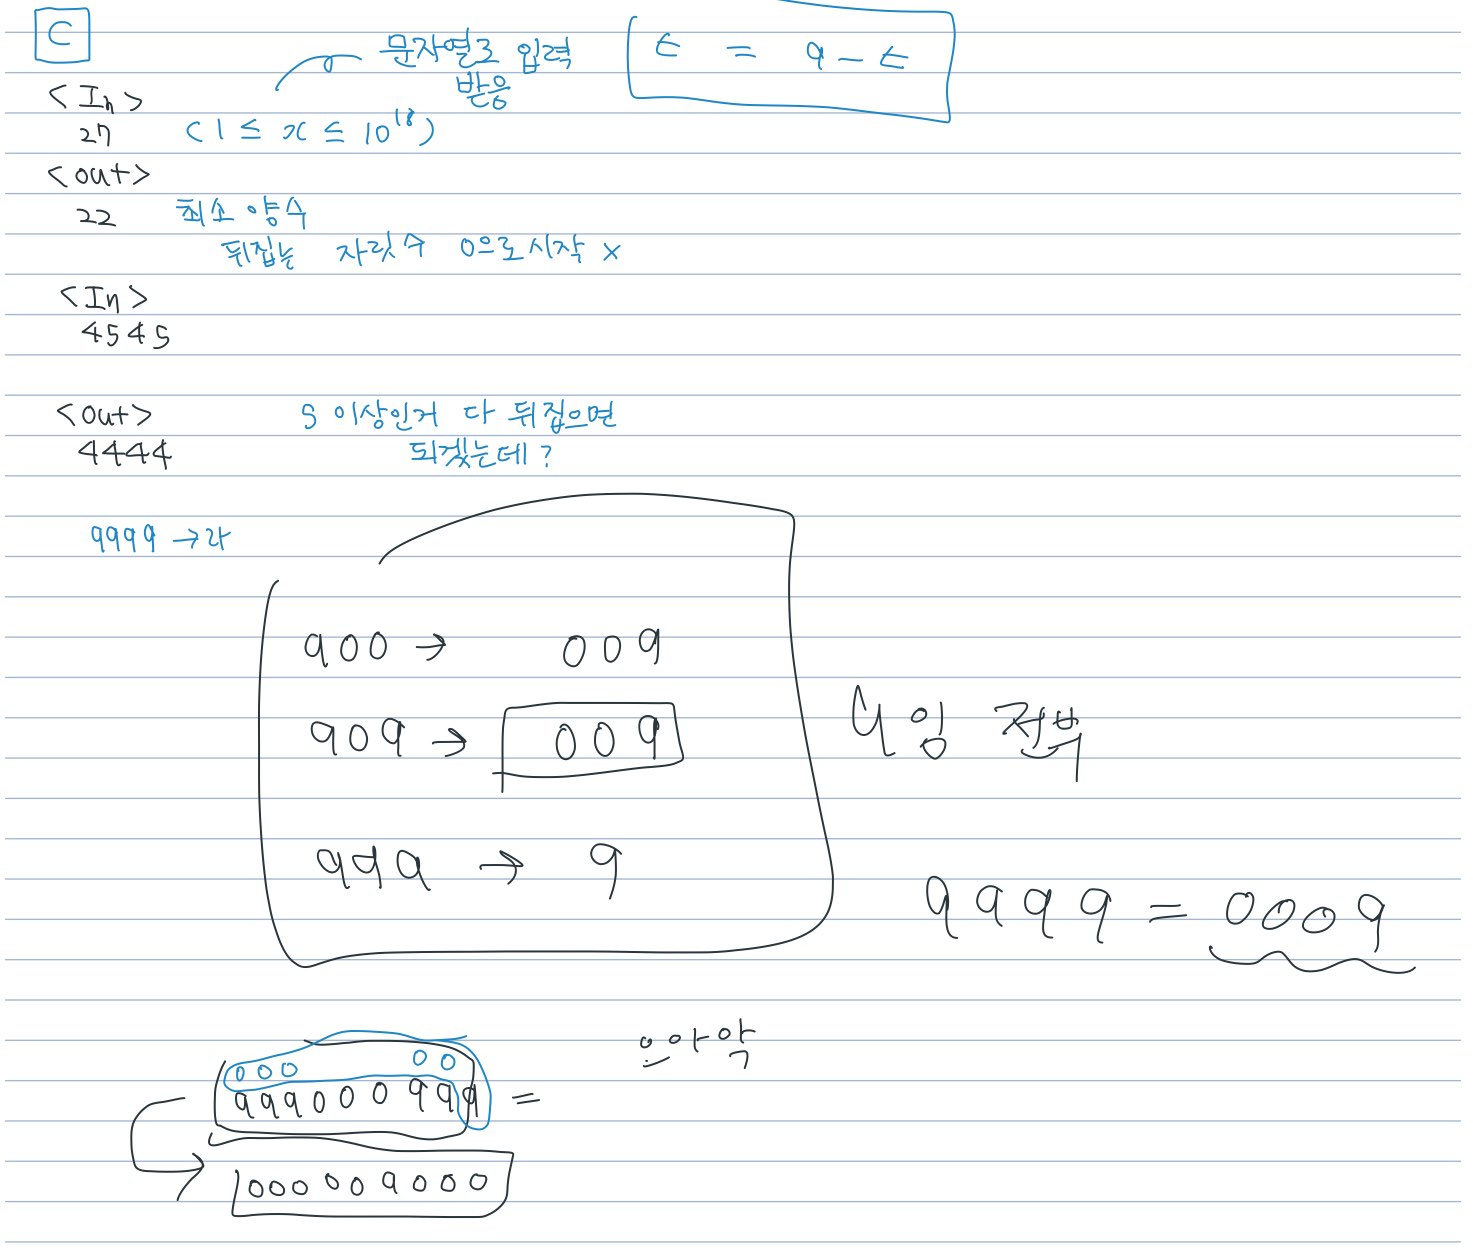 C
문자열로 입력
받음
t = 9 - t
<In>
27 (1 ≤ x ≤ 10¹⁸)
<out>
22 최소 양수
뒤집는 자릿수 0으로시작 x
<In>
4545
<out> 5 이상인거 다 뒤집으면
4444 되겠는데?
9999 →라
900 → 009
909 → 009
너임 전부
999 → 9
9999 = 0009
으아악
000 00
999000999 =
000009000